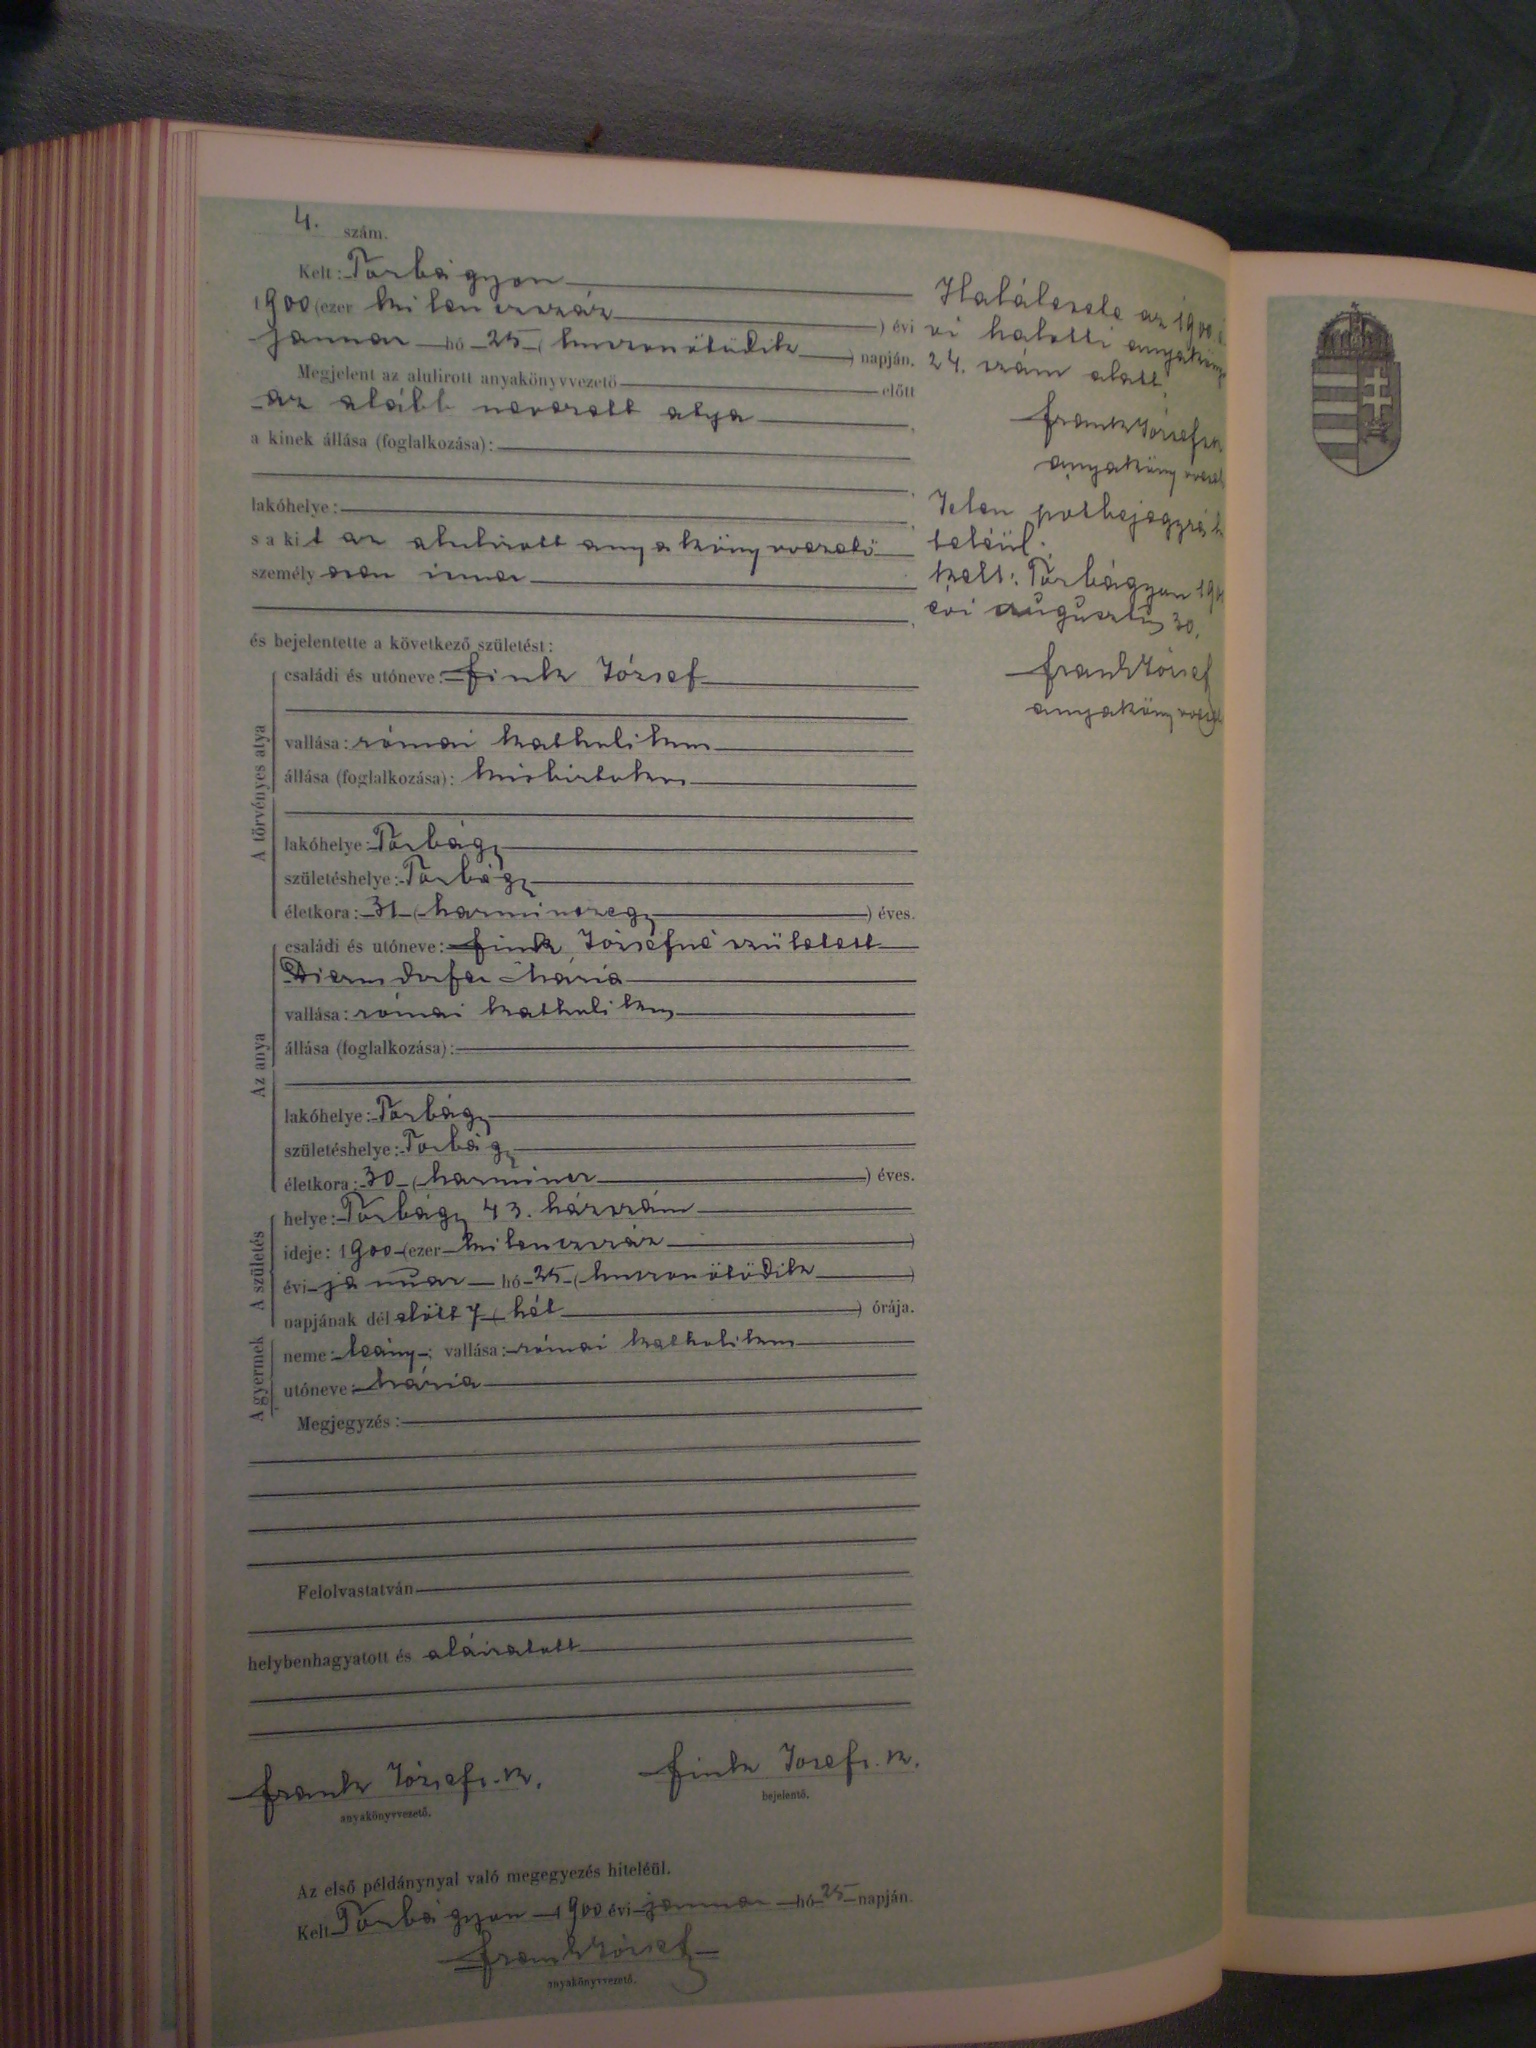 4. szám.
Kelt: Torbágyon
1900 (ezer kilenczszáz ) évi
január hó 25 (huszonötödik ) napján.
Megjelent az alulirott anyakönyvvezető előtt
az alább nevezett atya ,
a kinek állása (foglalkozása):
,
lakóhelye: ,
s a kit az alulirott anyakönyvvezető
személyesen ismer
,
és bejelentette a következő születést:
A törvényes atya
családi és utóneve: Fink József
vallása: római katholikus
állása (foglalkozása): kisbirtokos
lakóhelye: Torbágy
születéshelye: Torbágy
életkora: 31 (harminczegy ) éves.
Az anya
családi és utóneve: Fink Józsefné született
Mária
vallása: római katholikus
állása (foglalkozása):
lakóhelye: Torbágy
születéshelye: Torbágy
életkora: 30 (harmincz ) éves.
A születés
helye: Torbágy 43. házszám
ideje: 1900 (ezer kilenczszáz )
évi január hó 25 (huszonötödik )
napjának dél előtt 7 (hét ) órája.
A gyermek
neme: leány; vallása: római katholikus
utóneve: Mária
Megjegyzés:
Felolvastatván
helybenhagyatott és aláiratott
Frank József s. k. Fink Josef s. k.
anyakönyvvezető. bejelentő.
Az első példánynyal való megegyezés hiteléül.
Kelt Torbágyon 1900 évi január hó 25 napján.
Frank József
anyakönyvvezető.
Halálesete az 1900 é
vi halotti
24. szám alatt.
Frank József
Jelen
hiteléül.
Kelt: Torbágyon
évi augusztus 30.
Frank József